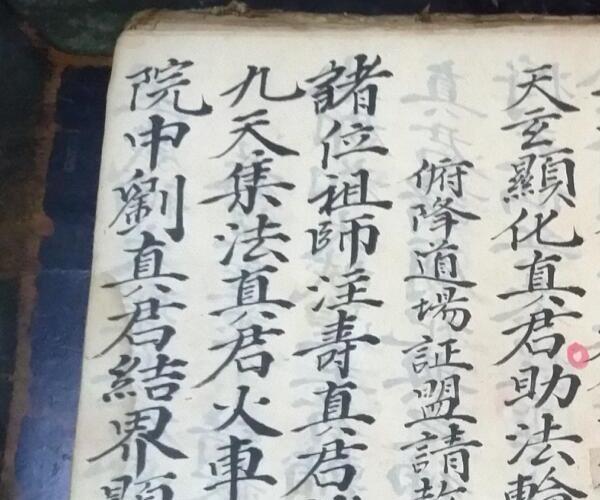 天玄顯化真君助法輪
俯降道場証盟請
諸位祖師注壽真君
九天集法真君火車
院申劉真君結界顯